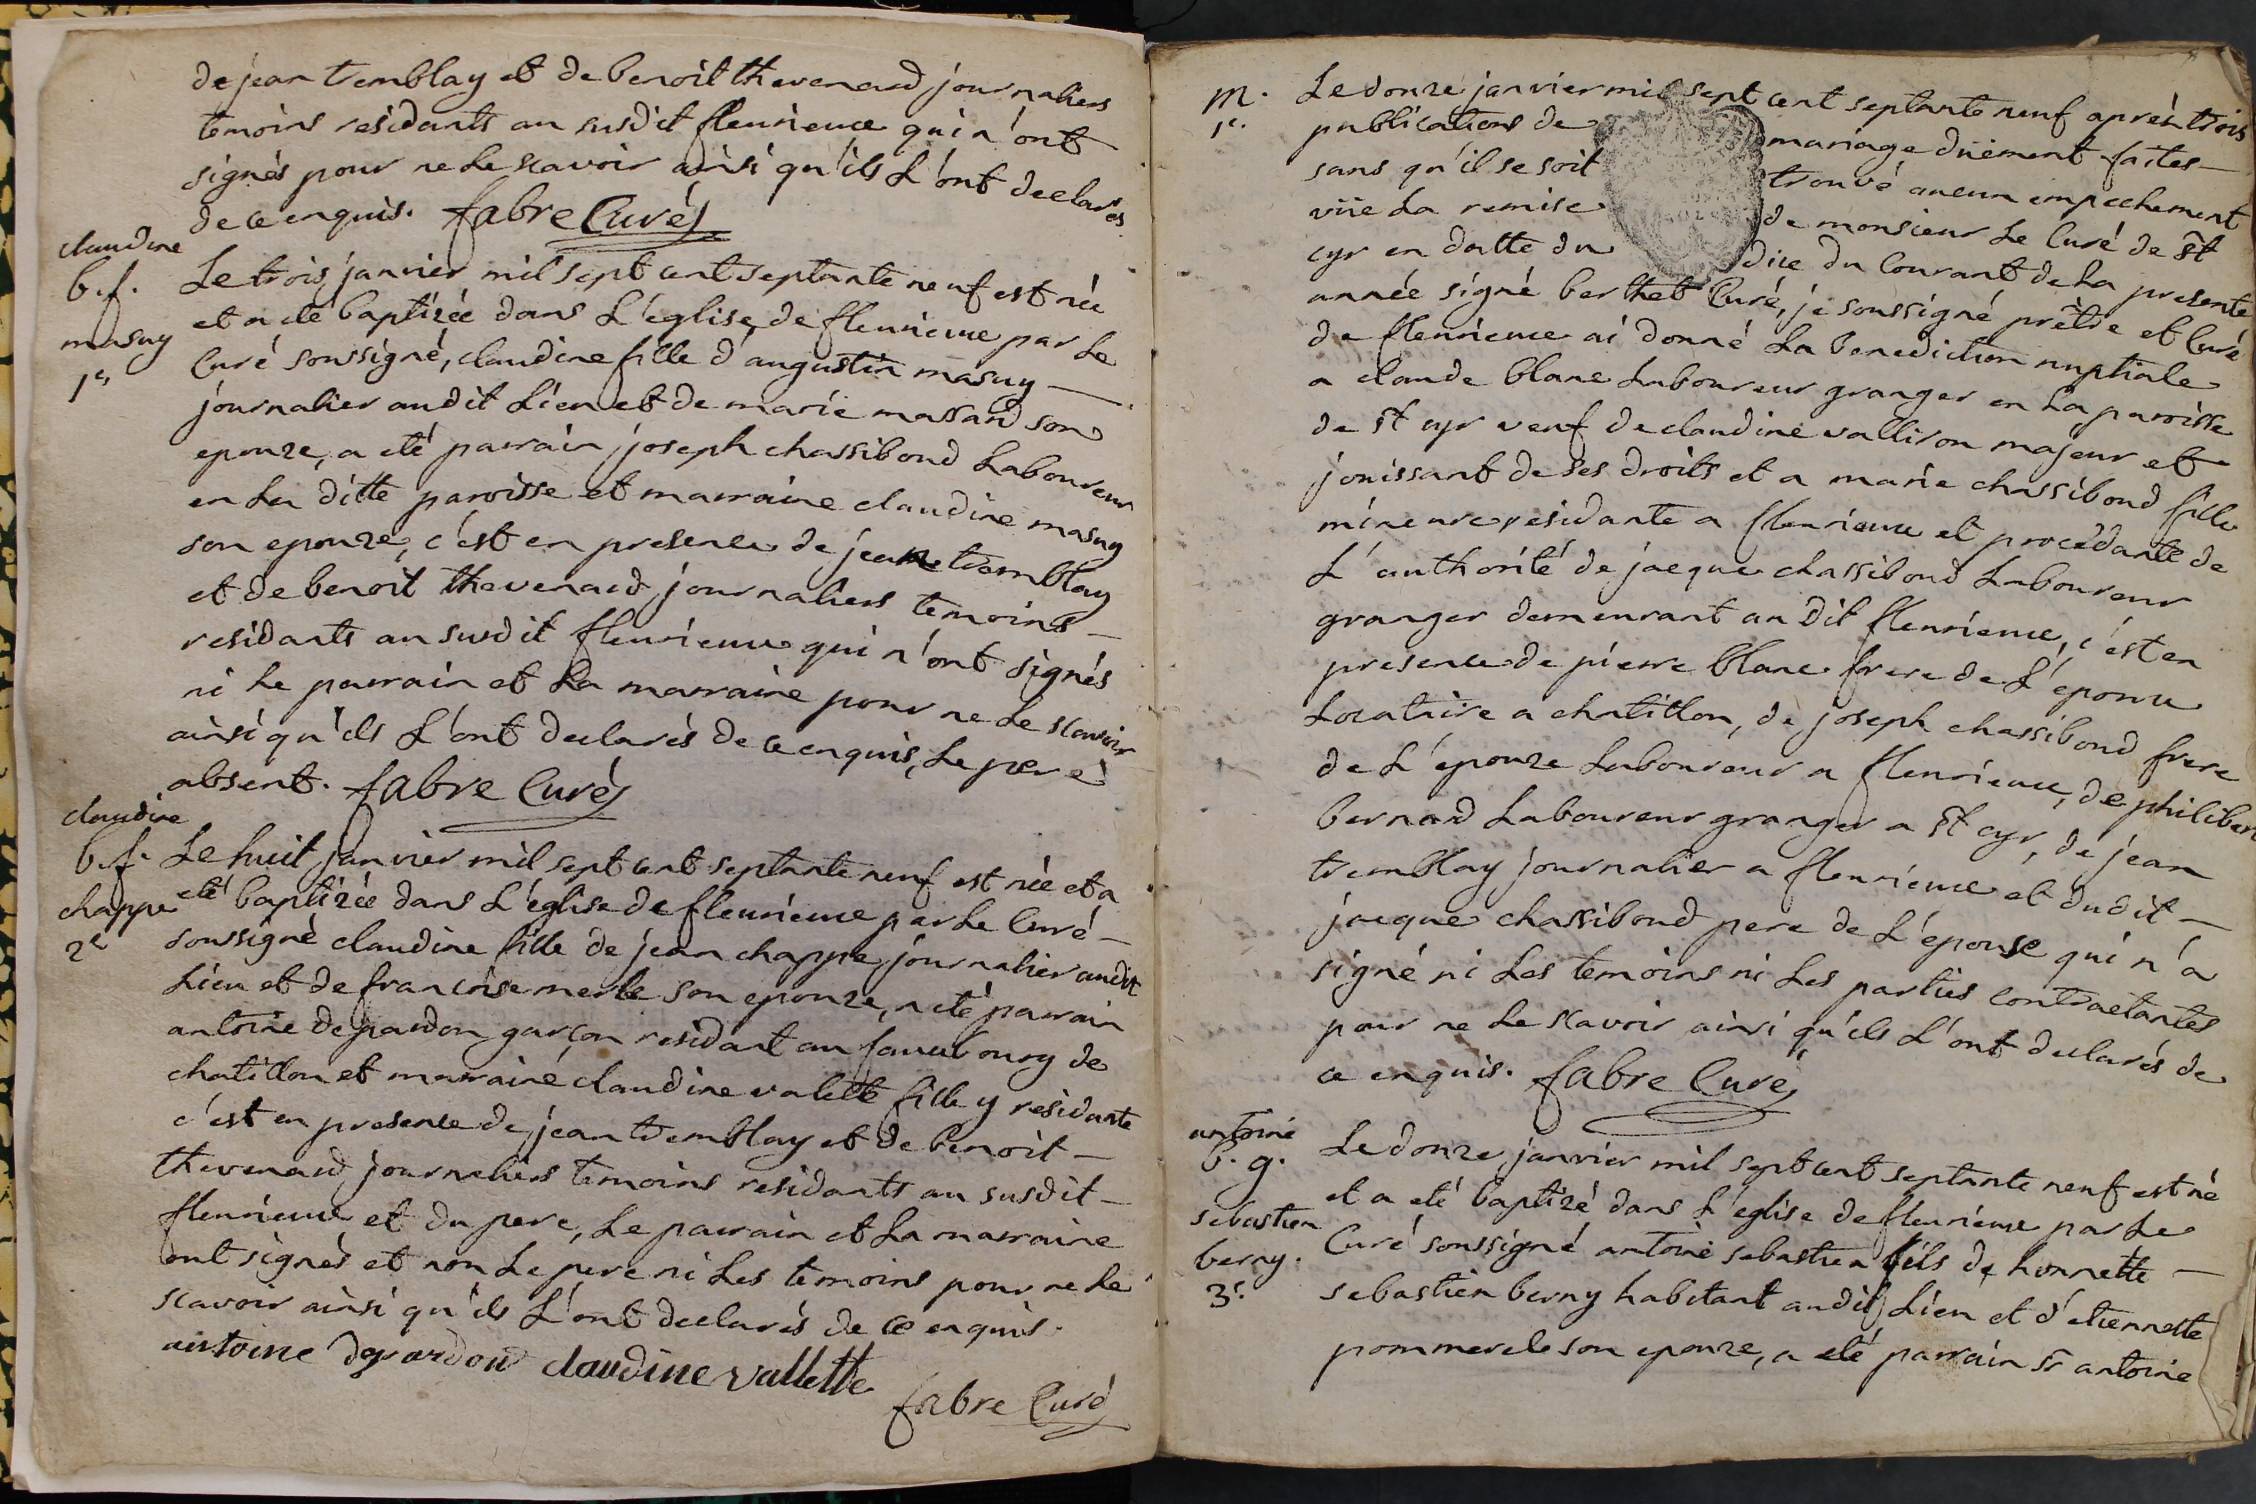 de jean tremblay et de benoit thevenard journaliers
temoins residants au susdit fleurieux qui n'ont
signés pour ne le scavoir ainsi qu'ils L'ont declarés
de ce enquis. fabre Curé
claudine
b. f.
masuy
1e
Le trois janvier mil sept cent septante neuf est née
et a eté baptizée dans L'église de fleurieux par Le
Curé soussigné, claudine fille d'augustin masuy
journalier audit Lieu et de marie massard son
epouze, a eté parrain joseph chassiboud Laboureur
en La ditte paroisse et marraine claudine masuy
son epouze, c'est en presence de jean tremblay
et de benoit thevenard journaliers temoins
residants au susdit fleurieux qui n'ont signés
ni Le parrain et La marraine pour ne Le scavoir
ainsi qu'ils L'ont declarés de ce enquis, Le pere
absent. fabre Curé
claudine
b. f.
chappe
2e
Le huit janvier mil sept cent septante neuf est née et a
eté baptizée dans L'église de fleurieux par Le Curé
soussigné claudine fille de jean chappe journalier audit
Lieu et de francoise merle son epouze, a eté parrain
antoine depardon garçon residant au fauxbourg de
chatillon et marraine claudine valette fille y residante
c'est en presence de jean tremblay et de benoit
thevenard journaliers temoins residants au susdit
fleurieux et du pere, Le parrain et La marraine
ont signés et non Le pere ni Les temoins pour ne Le
scavoir ainsi qu'ils L'ont declarés de ce enquis.
antoine depardon claudine vallette
fabre Curé
M.
1e.
Le douze janvier mil sept cent septante neuf aprés trois
publications de mariage düement faites
sans qu'il se soit trouvé aucun empechement
vüe La remise de monsieur Le Curé de st
cyr en datte du dix du Courant de La presente
année signé berthet Curé, je soussigné prêtre et Curé
de fleurieux ai donné La benediction nuptiale
a claude blanc Laboureur granger en La paroisse
de st cyr veuf de claudine valliron majeur et
jouissant de ses droits et a marie chassiboud fille
mineure residante a fleurieux et procédante de
L'authorité de jacque chassiboud Laboureur
granger demeurant au dit fleurieux, c'est en
presence de pierre blanc frere de L'epoux
Locataire a chatillon, de joseph chassiboud frere
de L'epouze Laboureur a fleurieux, de philibert
bernard Laboureur granger a st cyr, de jean
tremblay journalier a fleurieux et dudit
jacque chassiboud pere de L'epouse qui n'a
signé ni Les temoins ni Les parties contractantes
pour ne Le scavoir ainsi qu'ils L'ont declarés de
ce enquis. fabre Curé
antoine
b. g.
sebastien
berny.
3e.
Le douze janvier mil sept cent septante neuf est né
et a eté baptizé dans L'église de fleurieux par Le
Curé soussigné antoine sebastien fils de honnette
sebastien berny habitant audit Lieu et d'etiennette
pommerele son epouze, a eté parrain sr antoine